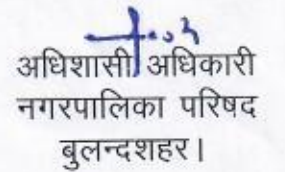 अधिशासी अधिकारी
नगरपालिका परिषद
बुलन्दशहर।